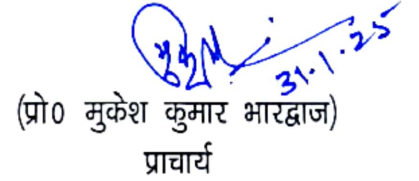 31.1.25
(प्रो0 मुकेश कुमार भारद्वाज)
प्राचार्य